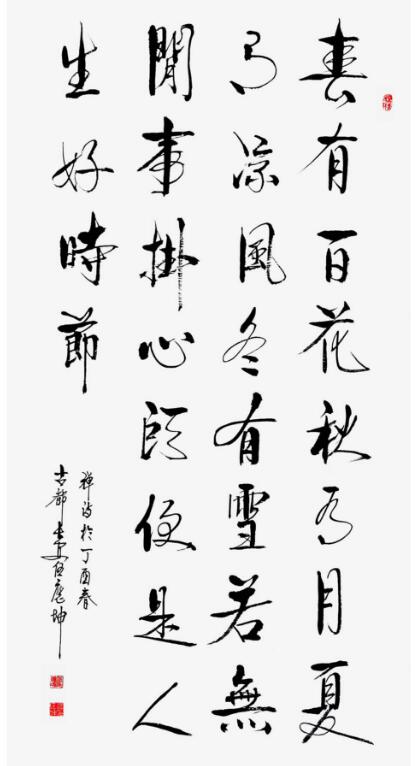 春有百花秋有月夏
有涼風冬有雪若無
閒事掛心頭便是人
生好時節
禅诗於丁酉春
古都長安應坤